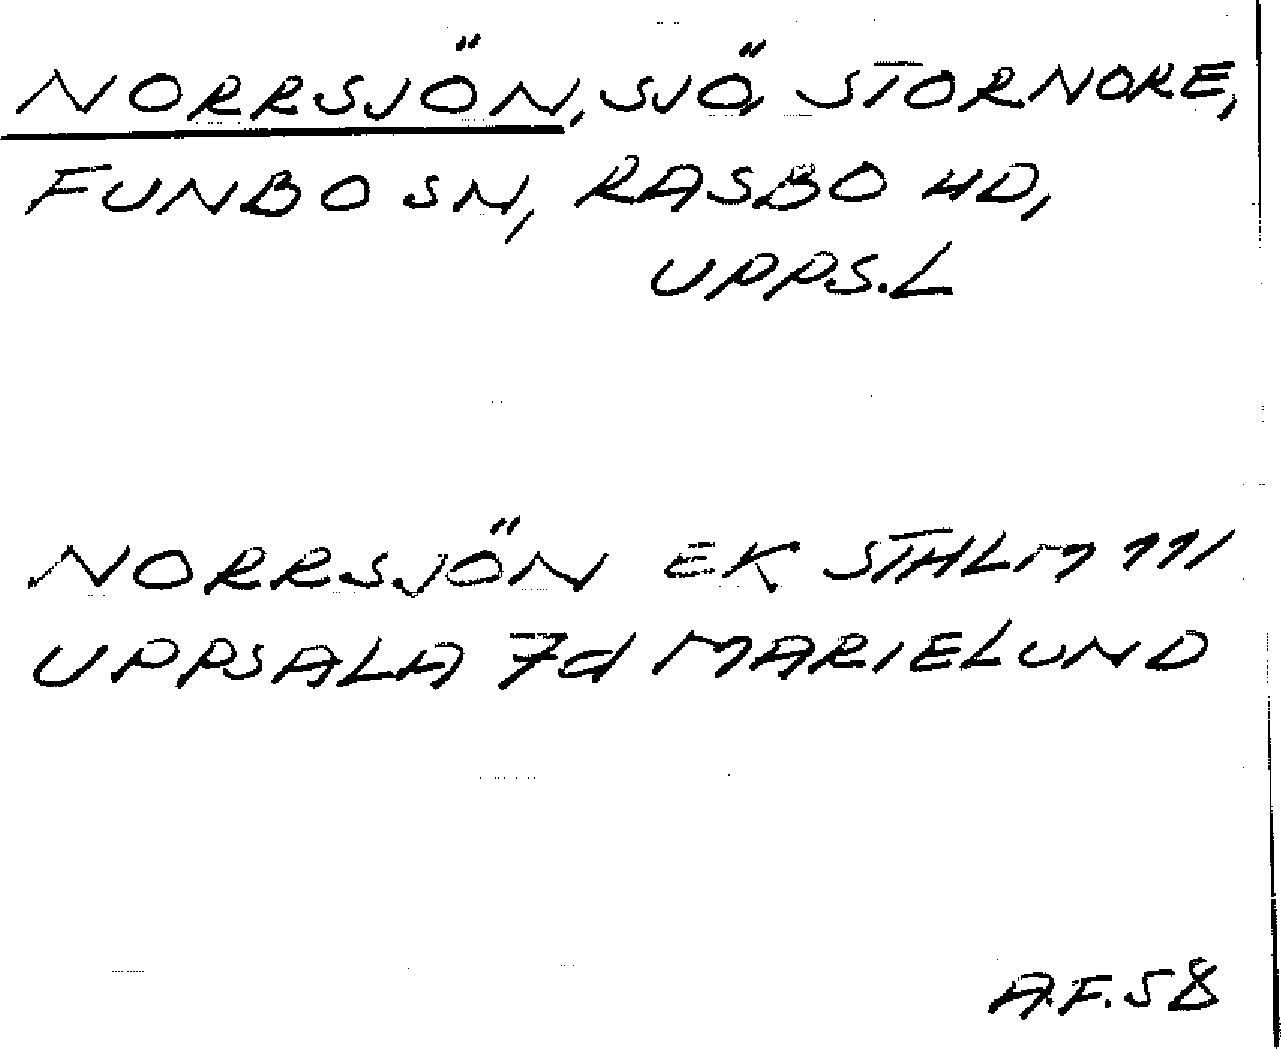 NORRSJÖN, SJÖ, STORNORE,
FUNBO SN, RASBO HD,
UPPS.L
NORRSJÖN EK STHLM 111
UPPSALA 7d MARIELUND
A.F. 58